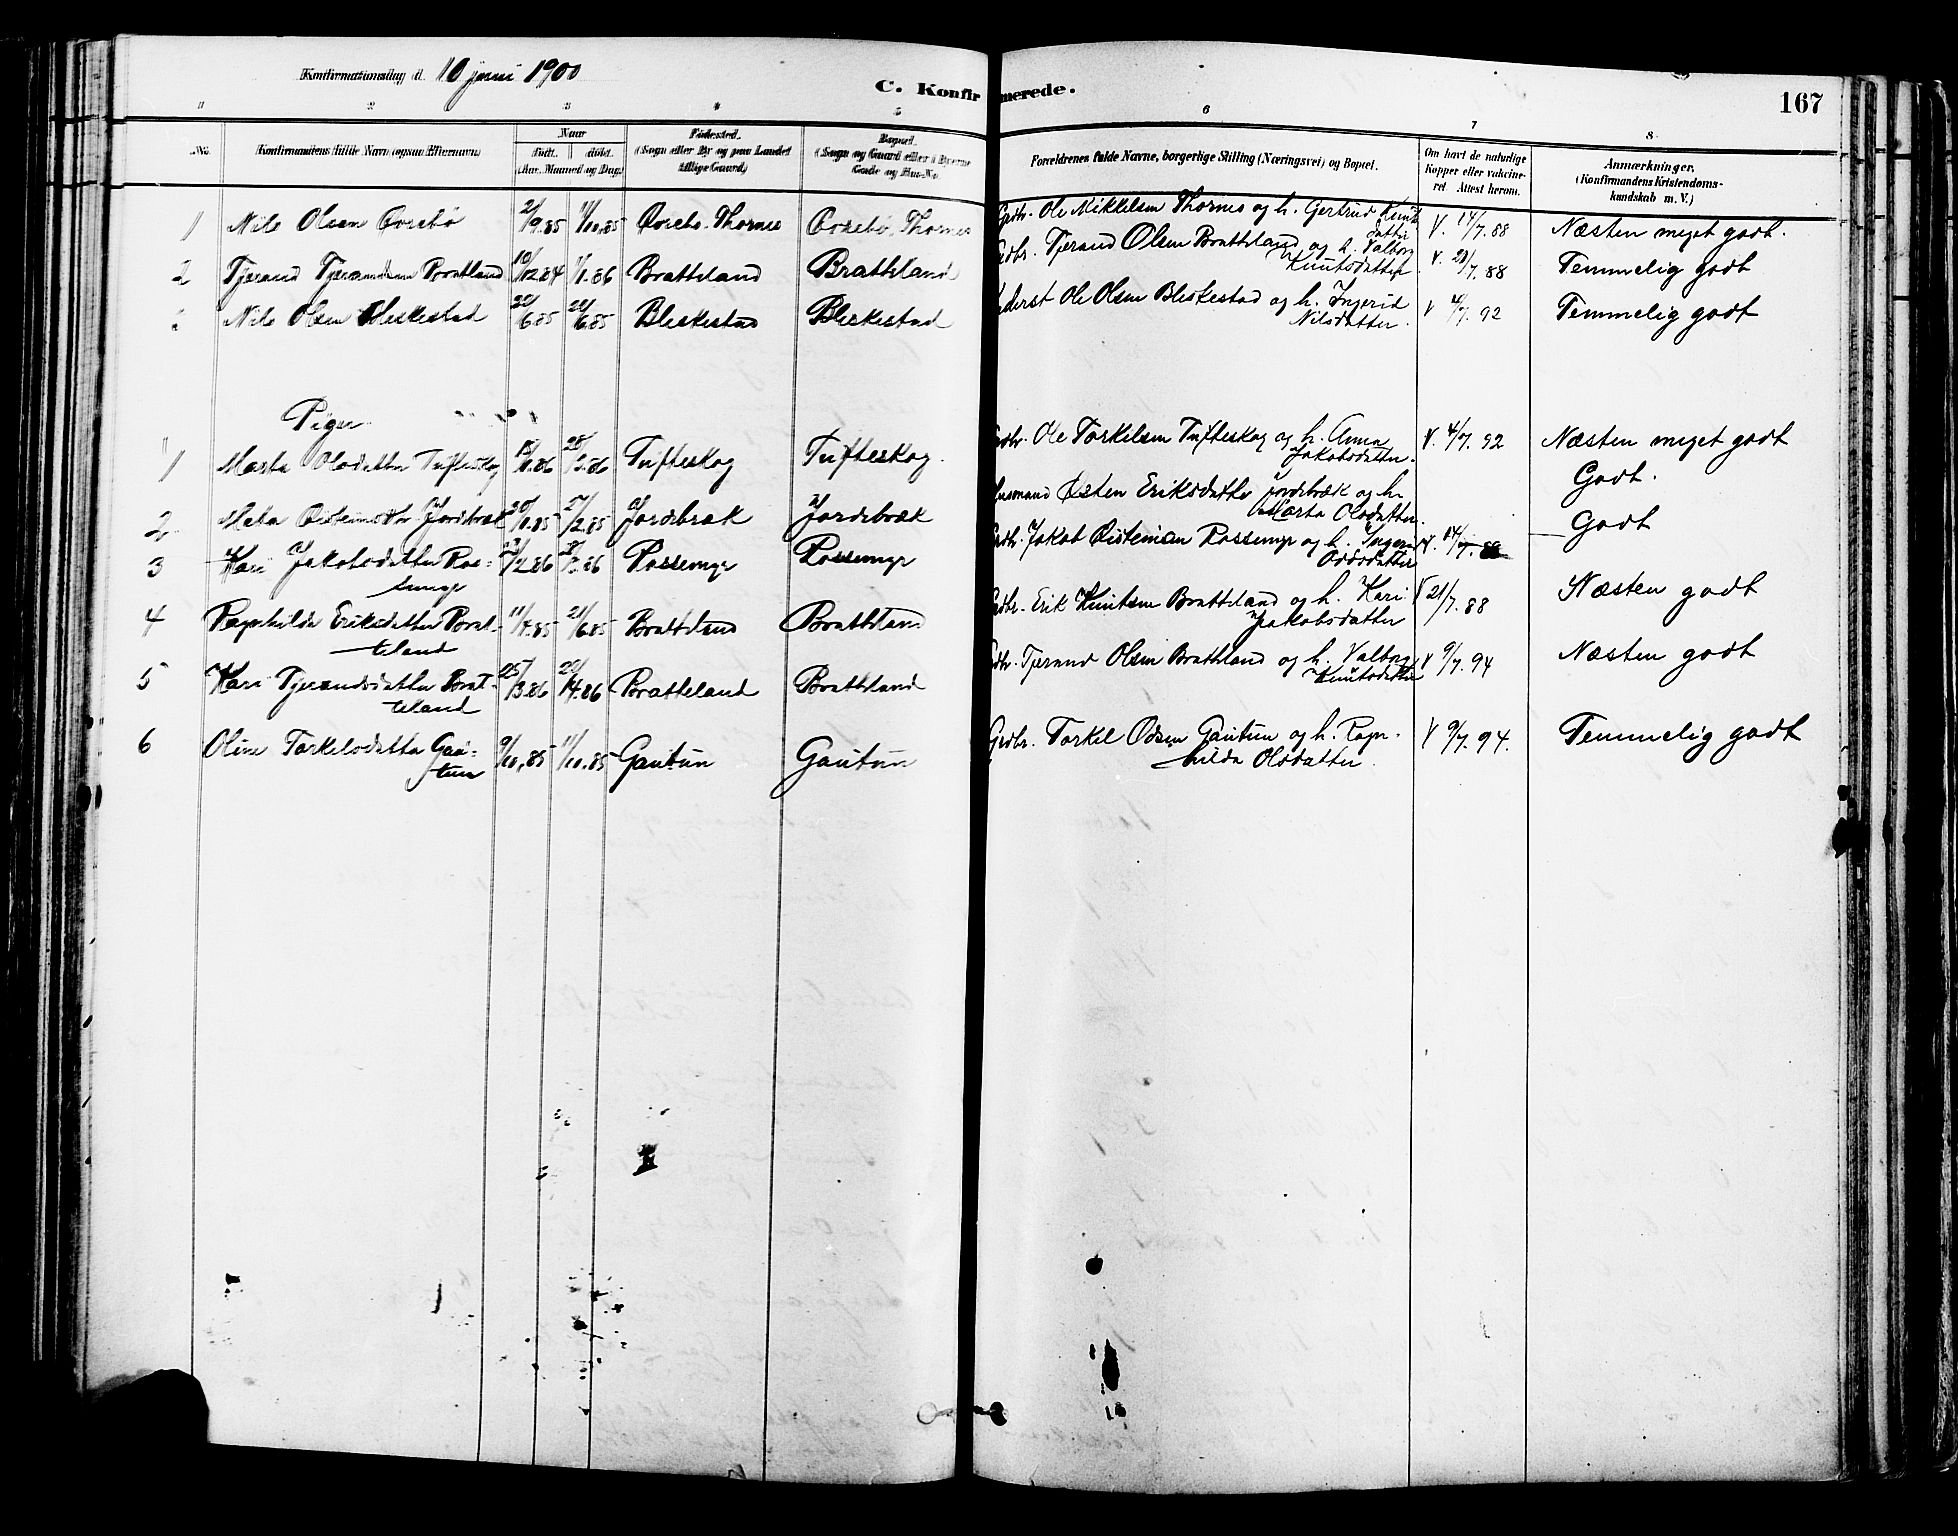 Konfirmationsdag d. 10 juni 1900
C. Konfirmerede.
167
1 2 3 4 5 6 7 8
No. Konfirmandens fulde Navn (ogsaa Efternavn) Naar Født. døbt. (Aar, Maaned og Dag) Fødested. (Sogn eller By og paa Landet tillige Gaard) Bopæl. (Sogn og Gaard eller i Byerne Gade og Hus-No. Forældrenes fulde Navne, borgerlige Stilling (Næringsvei) og Bopæl. Om havt de naturlige Kopper eller vakcineret Attest herom. Anmærkninger, (Konfirmandens Kristendomskundskab m. V.)
1 Nils Olsen Øvrebø 2/9.85 11/10.85 Øvrebø. Thornes Øvrebø, Thornes Gdbr. Ole Mikkelsen Thornes og h. Gertrud Knuts datter V. 14/7.88 Næsten meget godt.
2 Tjerand Tjerandsen Bratland 10/12.84 1/1.86 Bratteland Bratteland Gdbr. Tjerand Olsen Bratteland og h. Valborg Knutsdatter V. 21/7.88 Temmelig godt
Nils Olsen Bleskestad 22/6.85 28/6.85 Bleskestad Bleskestad Ole Olsen Bleskestad og h. Ingerid Nilsdatter. V 4/7.92 Temmelig godt
Piger
1 Marta Olsdatter Tufteskog Tufteskog Tufteskog. Gdbr. Ole Torkelsen Tufteskog og h. Anna Jakobsdatter. V. 4/7.92 Næsten meget godt
2 Jordebræk Jordebræk Jordebræk Husmand Østen Eriksdatter Jordebræk og h. Marta Olsdatter. Godt.
3 Kari Jakobsdatter Rossemyr Rossemyr Rossemyr Gdbr. Jakob Øisteinsen Rossemyr og h. Ingeri Oddsdatter V. 14/7.88 Godt
4 Ragnhilda Eriksdatter Bratteland 11/4.85 21/6.85 Bratteland Bratteland Gdbr. Erik Knutsen Bratteland og h. Kari Jakobsdatter V 21/7.88 Næsten godt
5 Kari Tjerandsdatter Bratteland 25/3.86 Bratteland Bratteland Gdbr. Tjerand Olsen Bratteland og h. Valborg Knutsdatter V 9/7.94 Næsten godt
6 Oline Torkelsdatter Gautun 9/10.85 11/10.85 Gautun Gautun Grdbr. Torkel Odsen Gautun og h. Ragnhilda Olsdatter. V 9/7.94. Temmelig godt